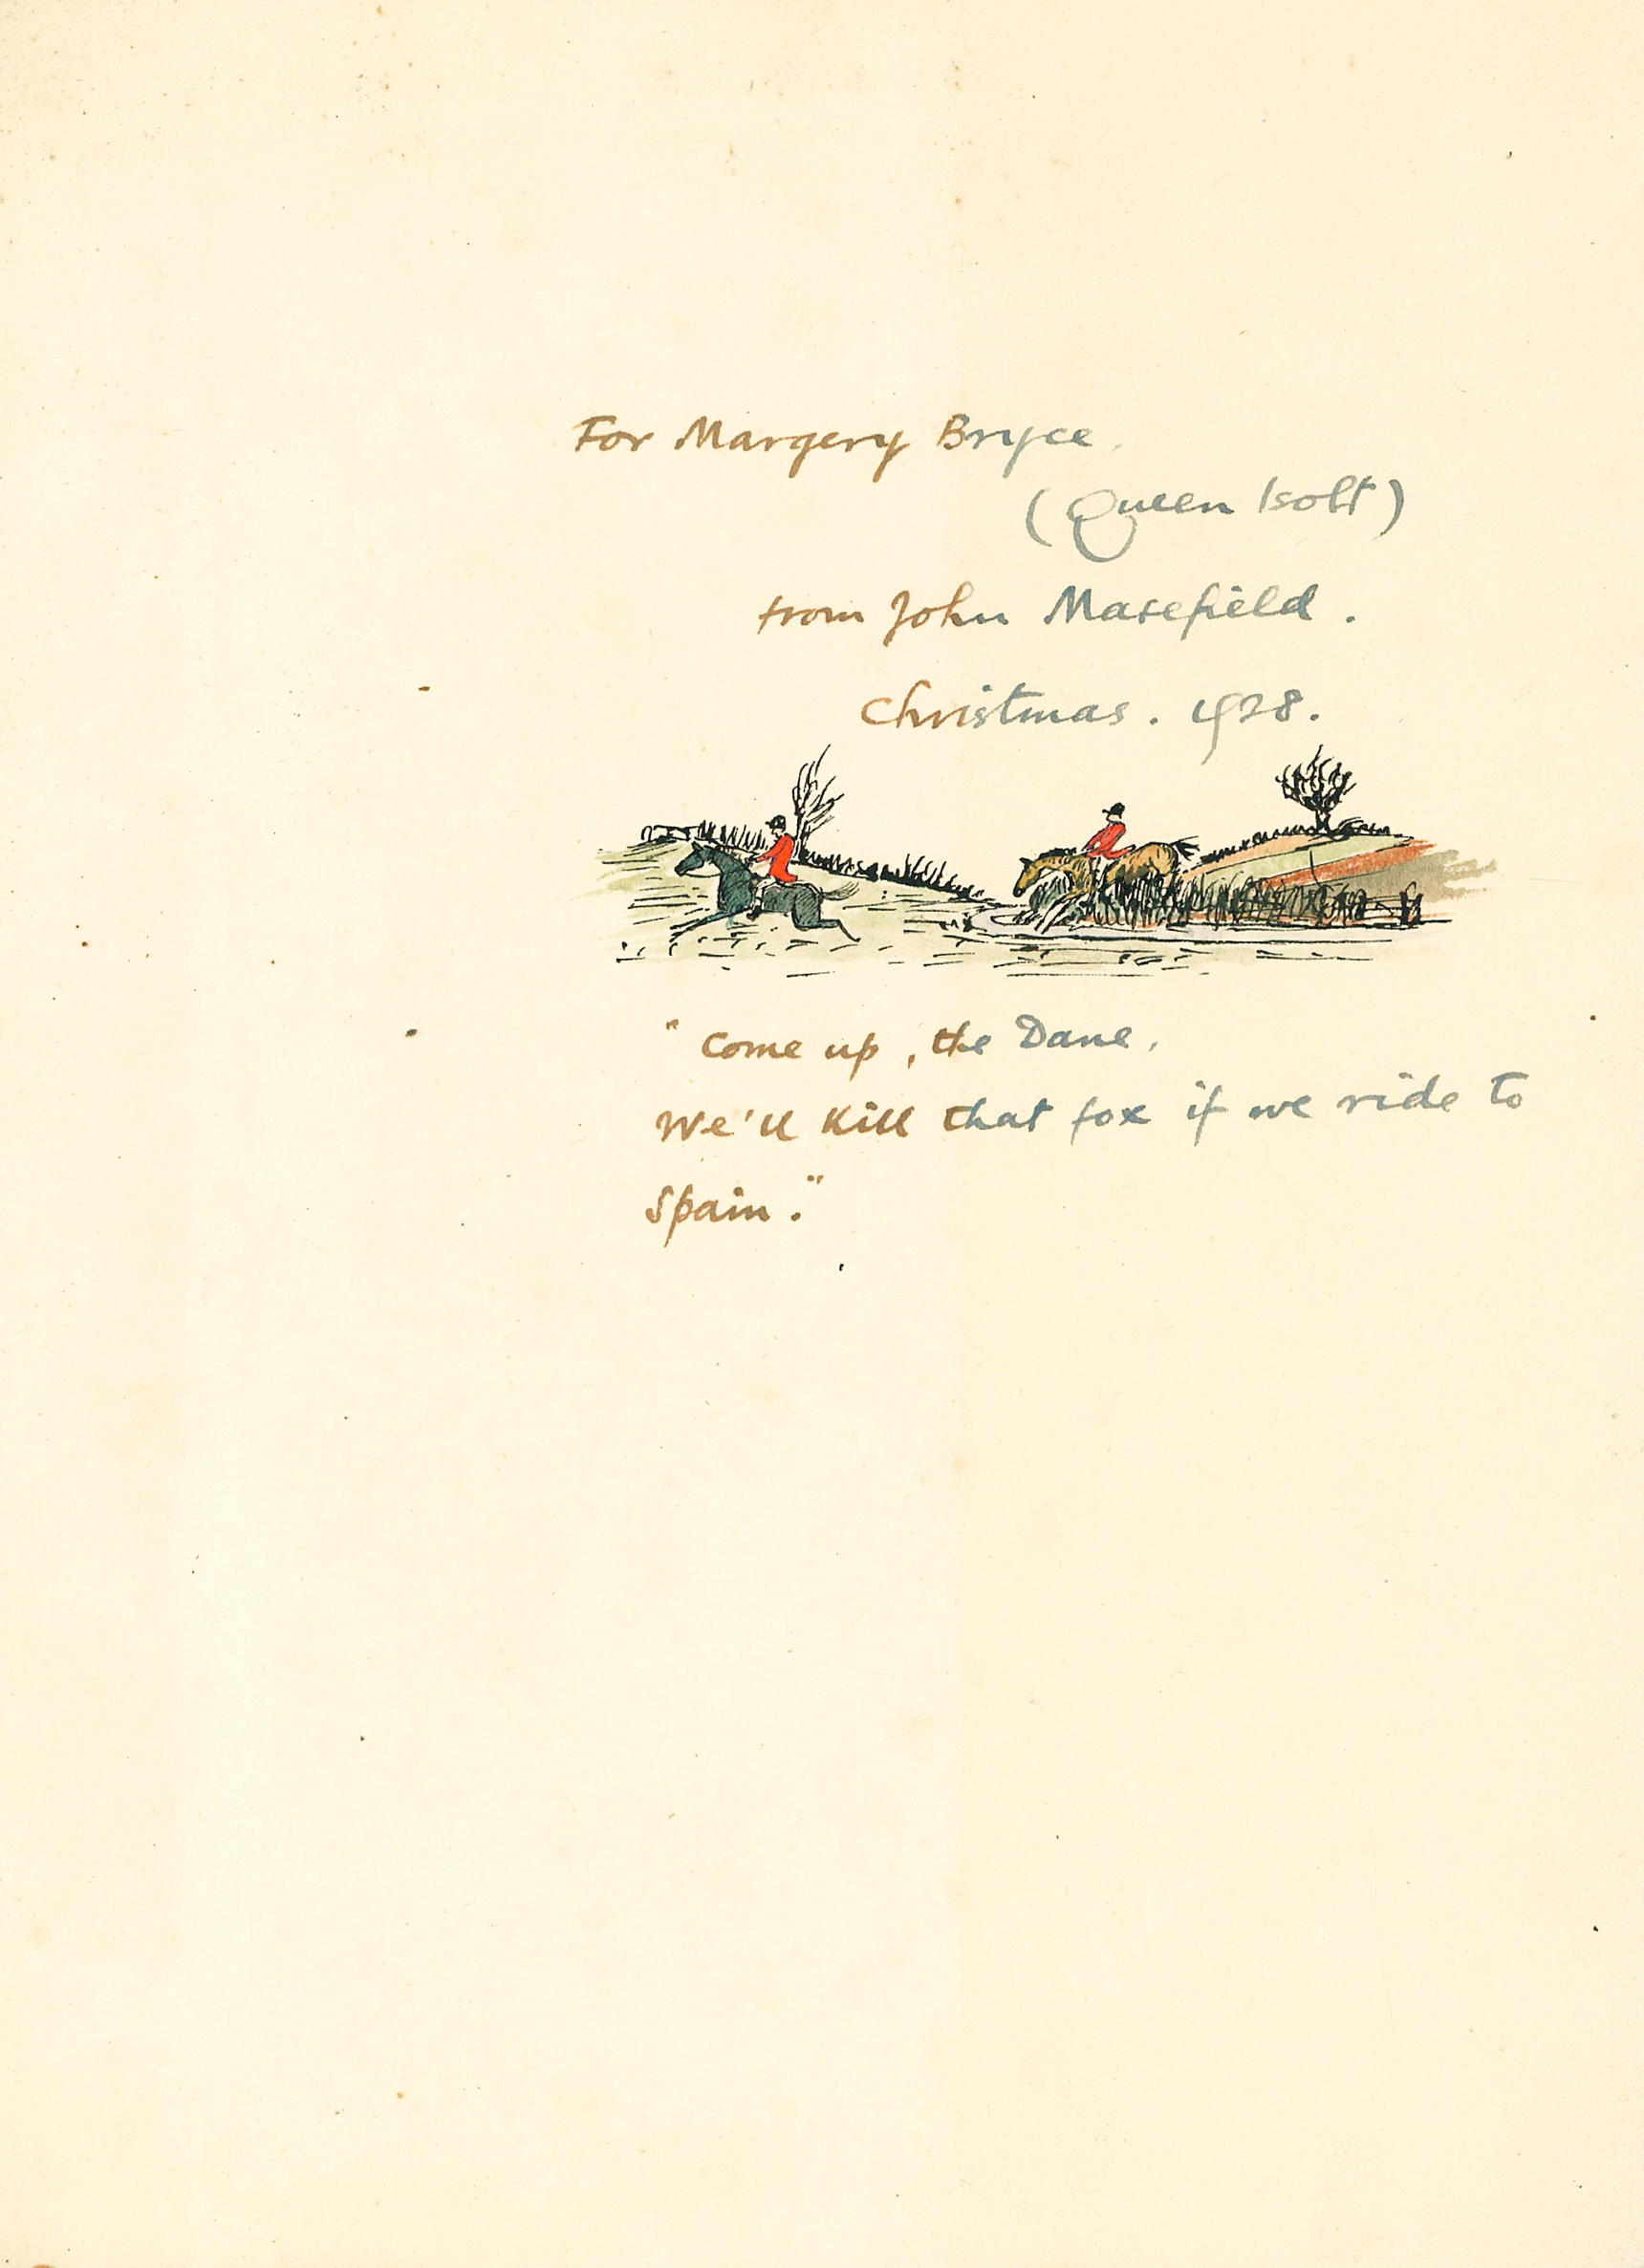 For Margery Bryce.
(Queen Isolt)
from John Masefield.
Christmas. 1928.
"Come up, the Dane,
We'll kill that fox if we ride to
Spain."